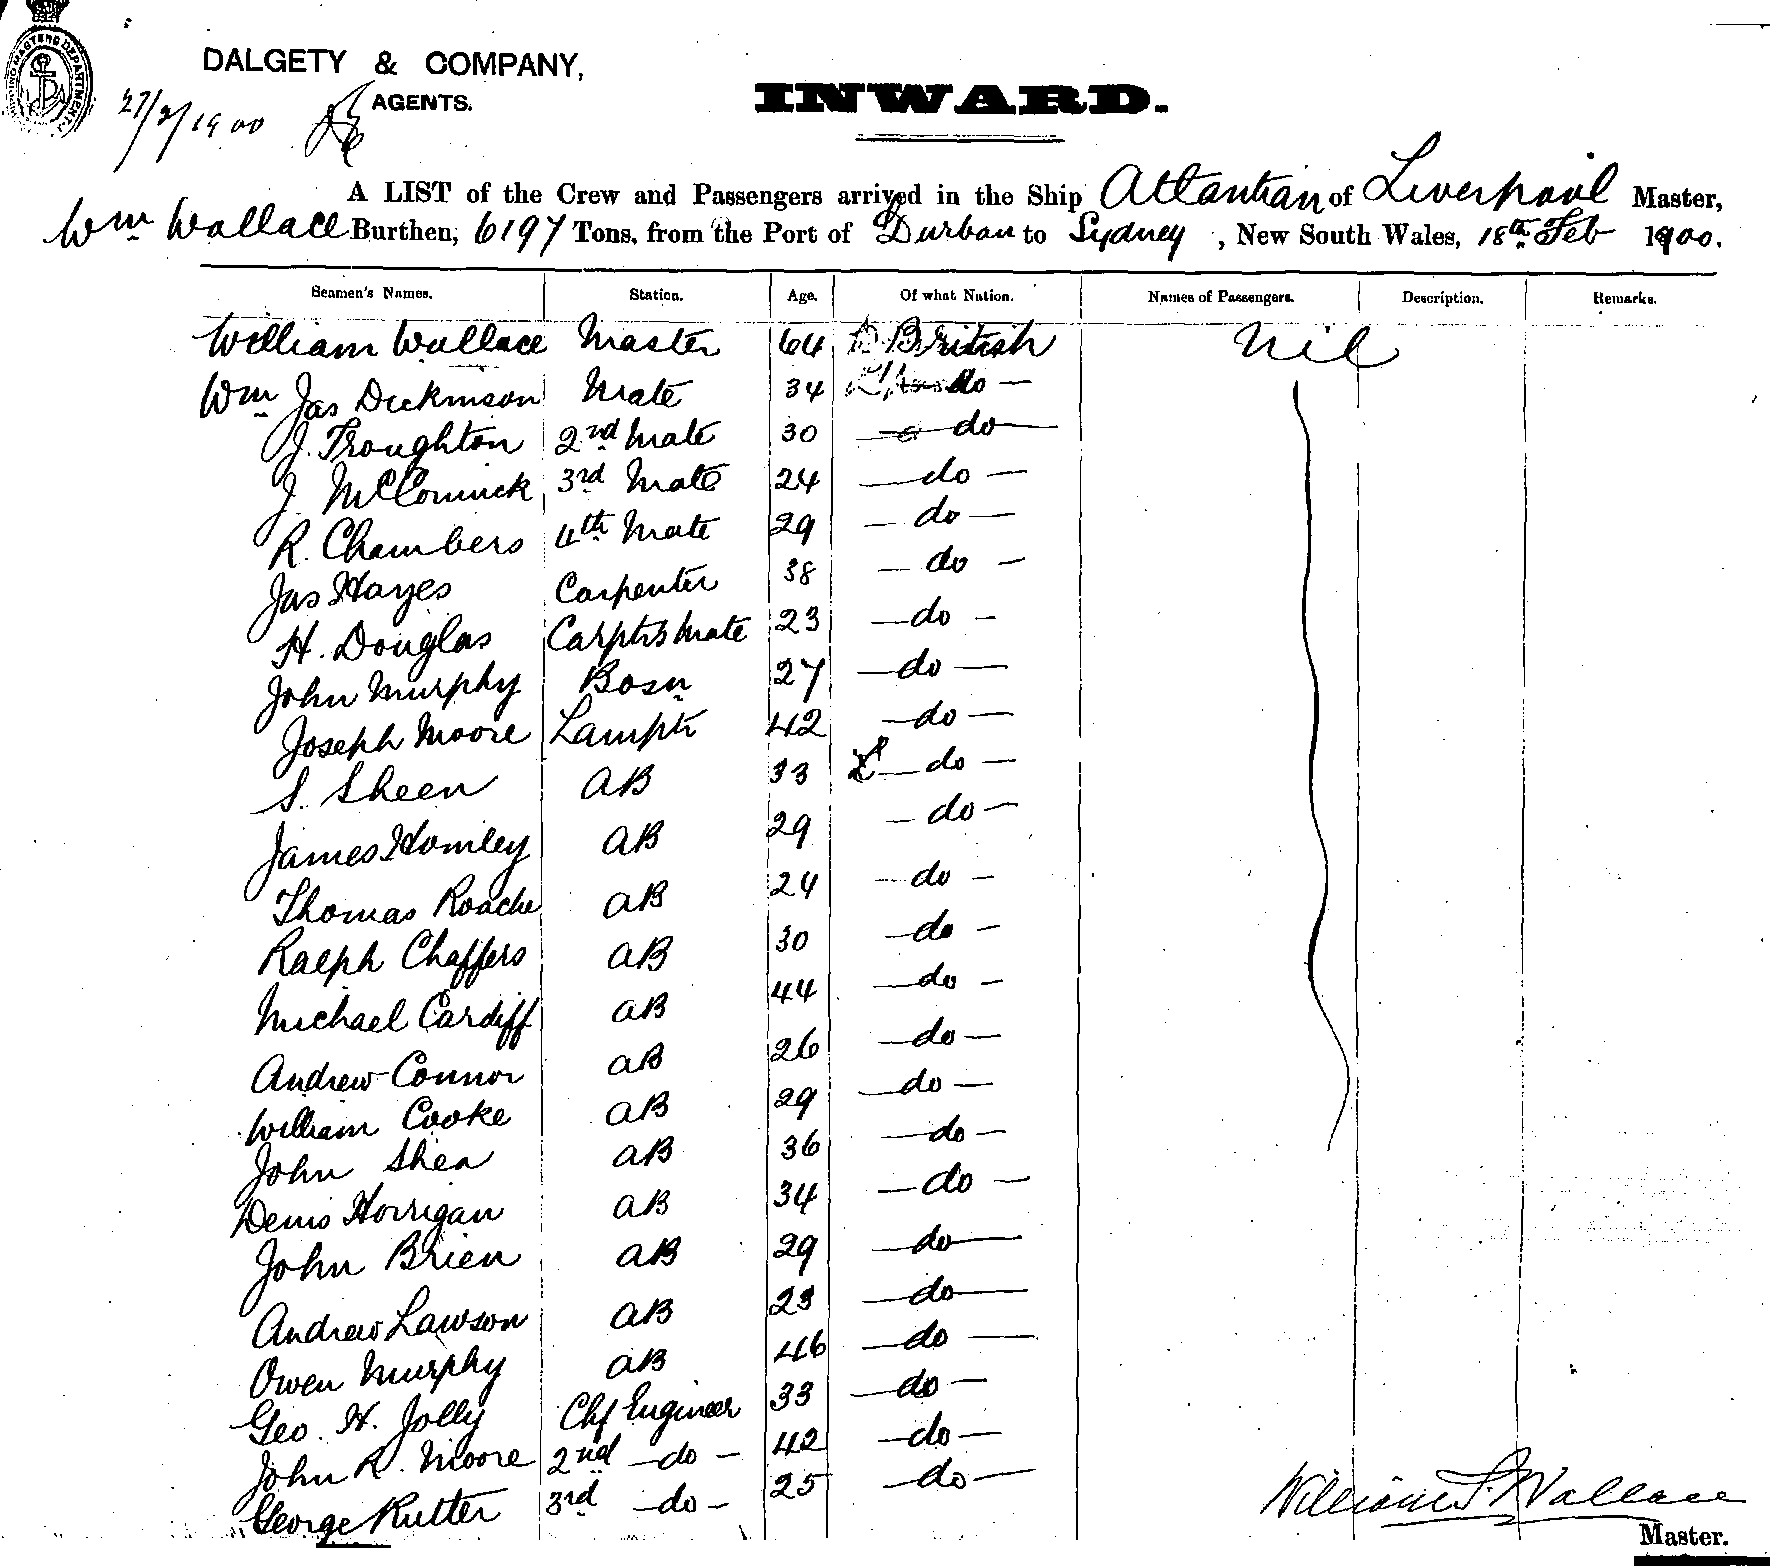 SHIPPING MASTERS DEPARTMENT
DALGETY & COMPANY,
AGENTS.
27/2/1900
INWARD.
A LIST of the Crew and Passengers arrived in the Ship Atlantian of Liverpool Master,
Wm Wallace Burthen, 6197 Tons, from the Port of Durban to Sydney, New South Wales, 18th Feb 1900.
Seamen's Names. Station. Age. Of what Nation. Names of Passengers. Description. Remarks.
William Wallace Master 64 British Nil
Wm Jas Dickinson Mate 34 do
J. Troughton 2nd Mate 30 do
J. McCormick 3rd Mate 24 do
R. Chambers 4th Mate 29 do
Jas Hayes Carpenter 38 do
H. Douglas Carptrs Mate 23 do
John Murphy Bosn 27 do
Joseph Moore Lamptr 42 do
S. Sheen AB 33 do
James Homley AB 29 do
Thomas Roache AB 24 do
Ralph Chaffers AB 30 do
Michael Cardiff AB 44 do
Andrew Connor AB 26 do
William Cooke AB 29 do
John Shea AB 36 do
Denis Horrigan AB 34 do
John Brien AB 29 do
Andrew Lawson AB 23 do
Owen Murphy AB 46 do
Geo. H. Jolly Chf Engineer 33 do
John R. Moore 2nd do 42 do
George Rutter 3rd do 25 do
William S. Wallace
Master.